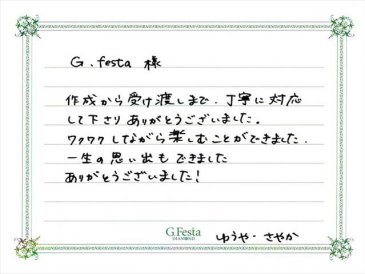 G.festa 様
作成から受け渡しまで、丁寧に対応
して下さりありがとうございました。
ワクワクしながら楽しむことができました.
一生の思い出もできました
ありがとうございました!
G.Festa
DIAMOND
ゆうや・さやか